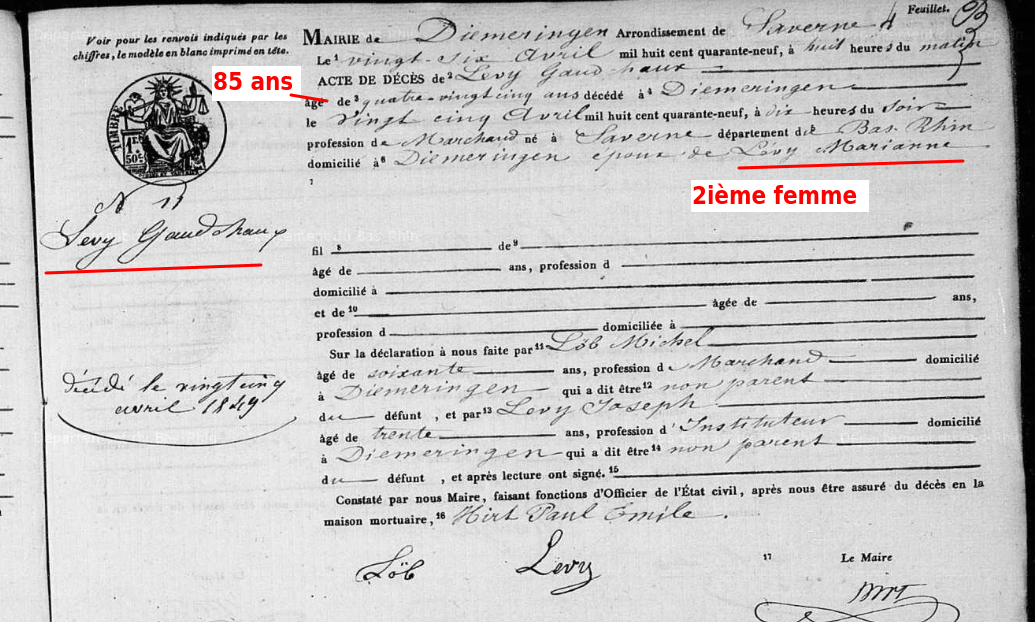 Feuillet.
Voir pour les renvois indiqués par les
chiffres, le modèle en blanc imprimé en tête.
MAIRIE de Diemeringen Arrondissement de Saverne
Le vingt-six Avril mil huit cent quarante-neuf, à huit heures du matin
ACTE DE DÉCÈS de Lévy Gaudchaux
85 ans
âgé de quatre-vingt cinq ans décédé à Diemeringen
le Vingt cinq Avril mil huit cent quarante-neuf, à dix heures du Soir
profession de Marchand né à Saverne département du Bas-Rhin
domicilié à Diemeringen époux de Lévy Marianne
2ième femme
TIMBRE
N 11
Levy Gaudchaux
fil de
âgé de ans, profession d
domicilié à
et de âgée de ans,
profession d domiciliée à
Sur la déclaration à nous faite par Löb Michel
âgé de soixante ans, profession d Marchand domicilié
à Diemeringen qui a dit être non parent
du défunt, et par Levy Joseph
âgé de trente ans, profession d'Instituteur domicilié
à Diemeringen qui a dit être non parent
du défunt, et après lecture ont signé.
décédé le vingt cinq
avril 1849
Constaté par nous Maire, faisant fonctions d'Officier de l'État civil, après nous être assuré du décès en la
maison mortuaire, Hirt Paul Emile.
Löb Levy
Le Maire
Hirt